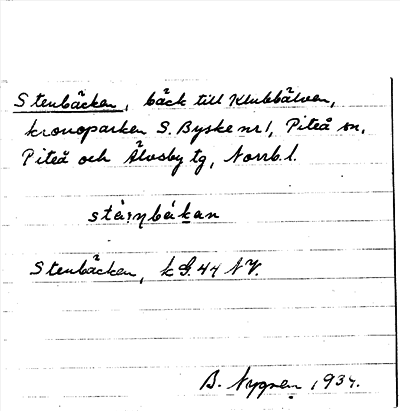 Stenbäcken, bäck till Klubbälven,
kronoparken S. Byske nr 1, Piteå sn,
Piteå och Älvsby tg, Norrb. l.
Stenbäcken, k G. 44 NV.
B. Nygren 1937.